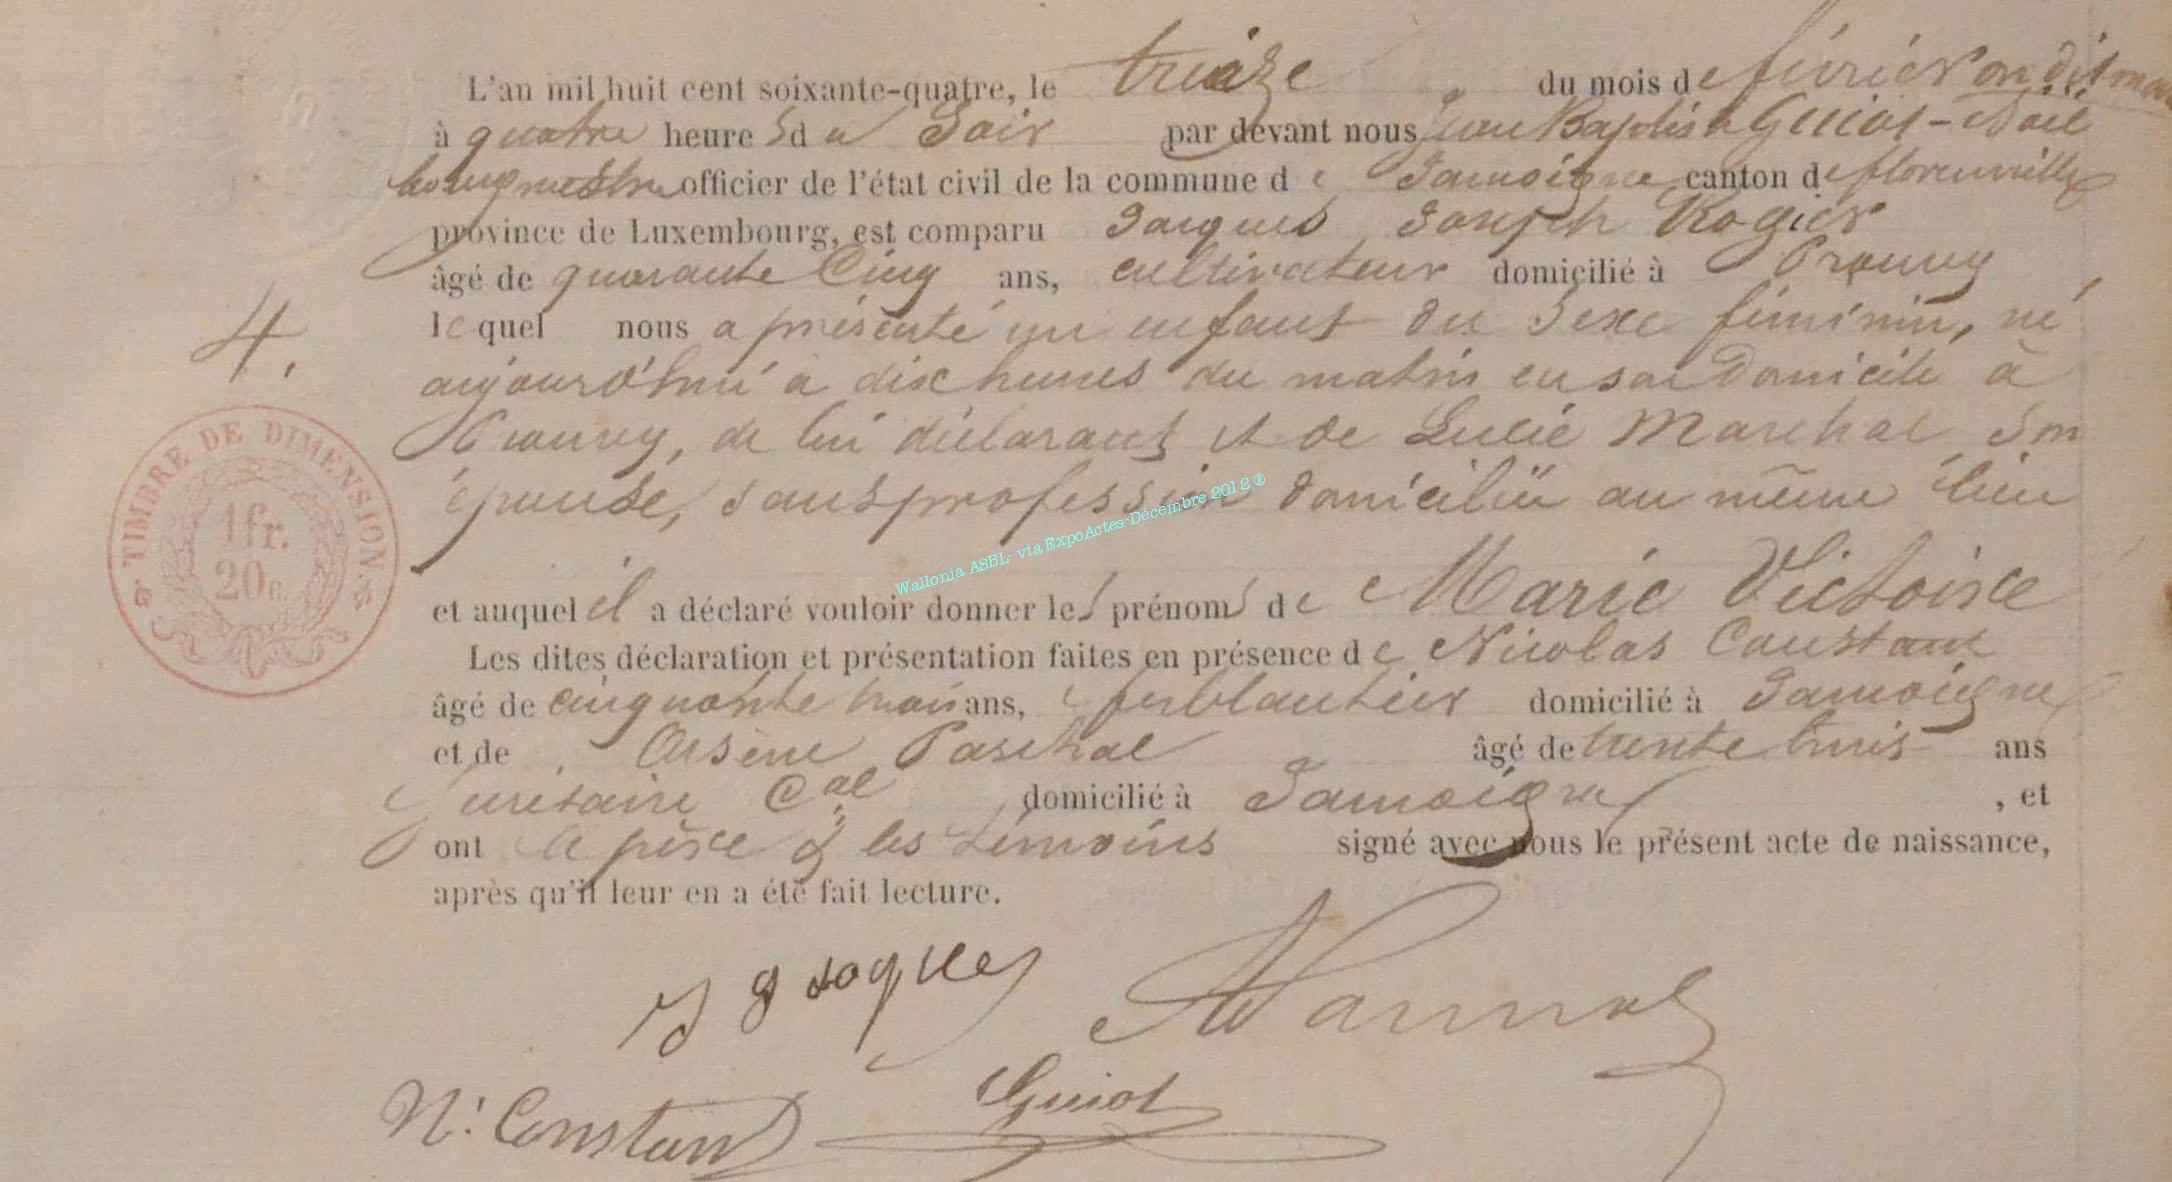 L'an mil huit cent soixante-quatre, le treize du mois de février on dit
à quatre heures du soir par devant nous Jean Baptiste Guiot-Noël
bourgmestre officier de l'état civil de la commune de Jamoigne canton de florenville
province de Luxembourg, est comparu Jacques Joseph Rogier
âgé de quarante cinq ans, cultivateur domicilié à Prouvy
4. lequel nous a présenté un enfant du sexe féminin, né
aujourd'hui à dix heures du matin en son domicile à
Prouvy, de lui déclarant et de Lucie Marchal son
épouse, sans profession domiciliée au même lieu
et auquel il a déclaré vouloir donner les prénoms de Marie Victoire
Les dites déclaration et présentation faites en présence de Nicolas Constant
âgé de cinquante trois ans, ferblantier domicilié à Jamoigne
et de Arsène Paschal âgé de trente trois ans
secrétaire Cal domicilié à Jamoigne, et
ont le père & les témoins signé avec nous le présent acte de naissance,
après qu'il leur en a été fait lecture.
N. Constant
Guiot
TIMBRE DE DIMENSION
1fr.
20c.
Wallonia ASBL- via ExpoActes-Décembre 2012®